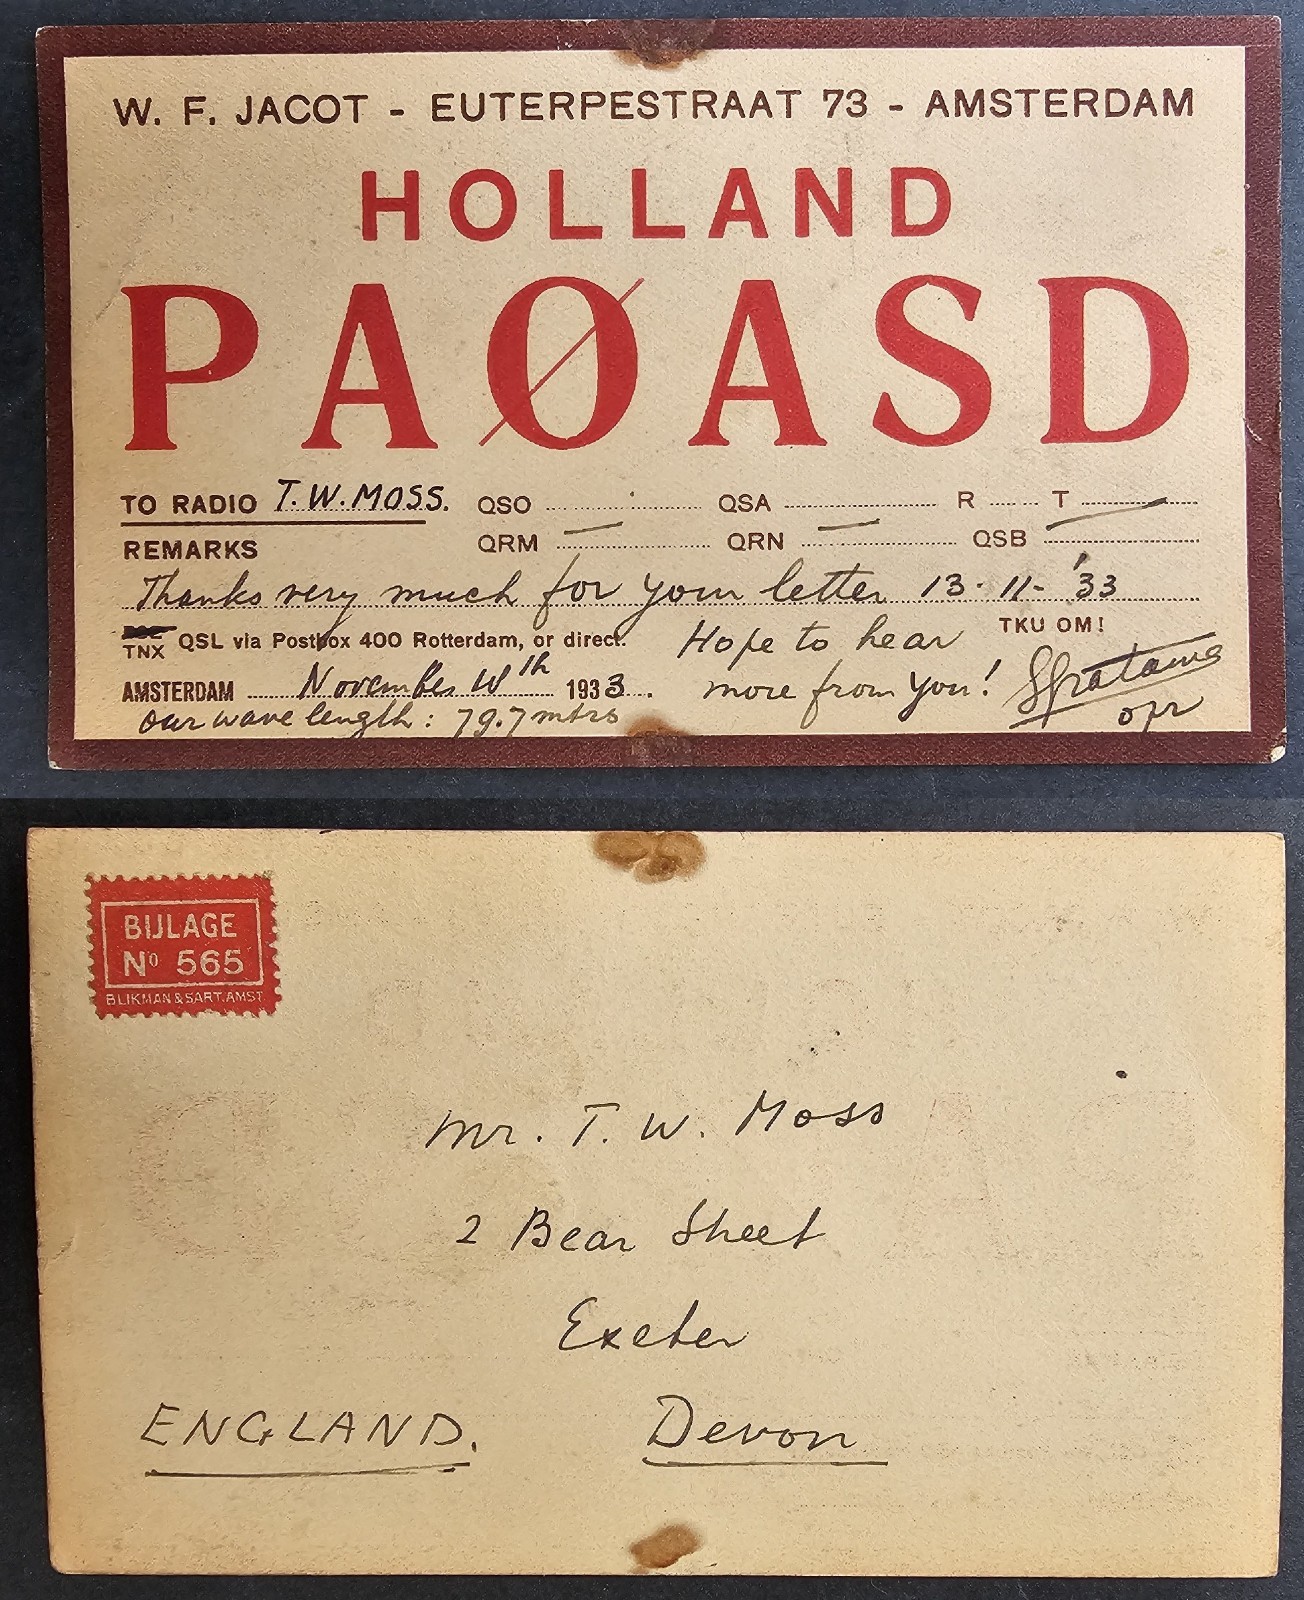 W. F. JACOT - EUTERPESTRAAT 73 - AMSTERDAM
HOLLAND
PAØASD
TO RADIO T. W. MOSS. QSO QSA R T
REMARKS QRM QRN QSB
Thanks very much for your letter 13-11-'33
TNX QSL via Postbox 400 Rotterdam, or direct. Hope to hear TKU OM!
AMSTERDAM November th 1933. more from you!
our wave length: 79.7 mtrs opr
BIJLAGE
Nº 565
BLIKMAN & SART. AMST.
Mr. T. W. Moss
2 Bear Street
Exeter
ENGLAND. Devon